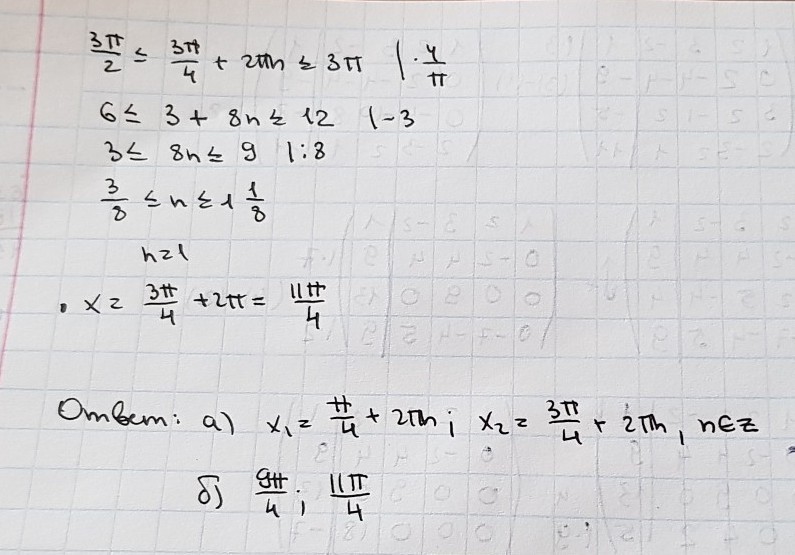 3π/2 ≤ 3π/4 + 2πn ≤ 3π | · 4/π
6 ≤ 3 + 8n ≤ 12 | -3
3 ≤ 8n ≤ 9 | : 8
3/8 ≤ n ≤ 1 1/8
n = 1
• x = 3π/4 + 2π = 11π/4
Ответ: а) x₁ = π/4 + 2πn ; x₂ = 3π/4 + 2πn, n∈Z
б) 9π/4 ; 11π/4